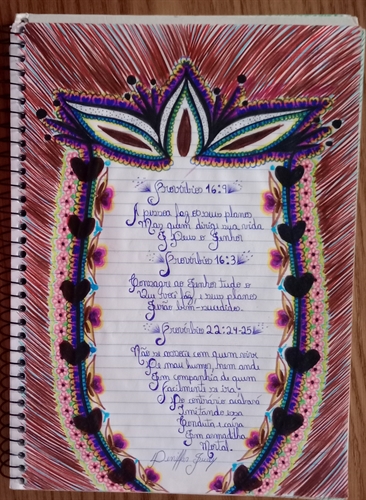 Provérbios 16:9
A pessoa faz os seus planos
Maz quem dirigi sua vida
É Deus o Senhor
Provérbios 16:3
Consagre ao Senhor tudo o
Que você faz, e seus planos
Serão bem-sucedidos.
Provérbios 22:24-25
Não se associe com quem vive
De mau humor, nem ande
Em companhia de quem
Facilmente se ira:
Do contrário acabará
Imitando essa
Conduta e cairá
Em armadilha
Mortal.